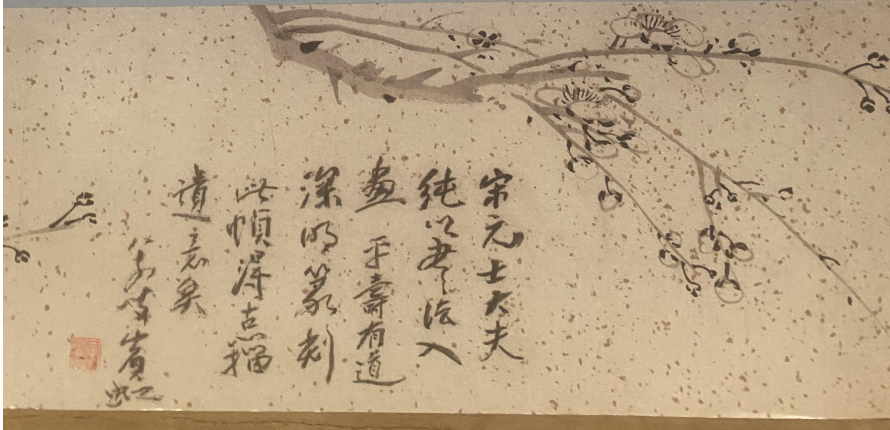 宋元士大夫
純以書法入
畫 平壽有道
深明篆刻
此幀得古籀
遺意矣
賓虹